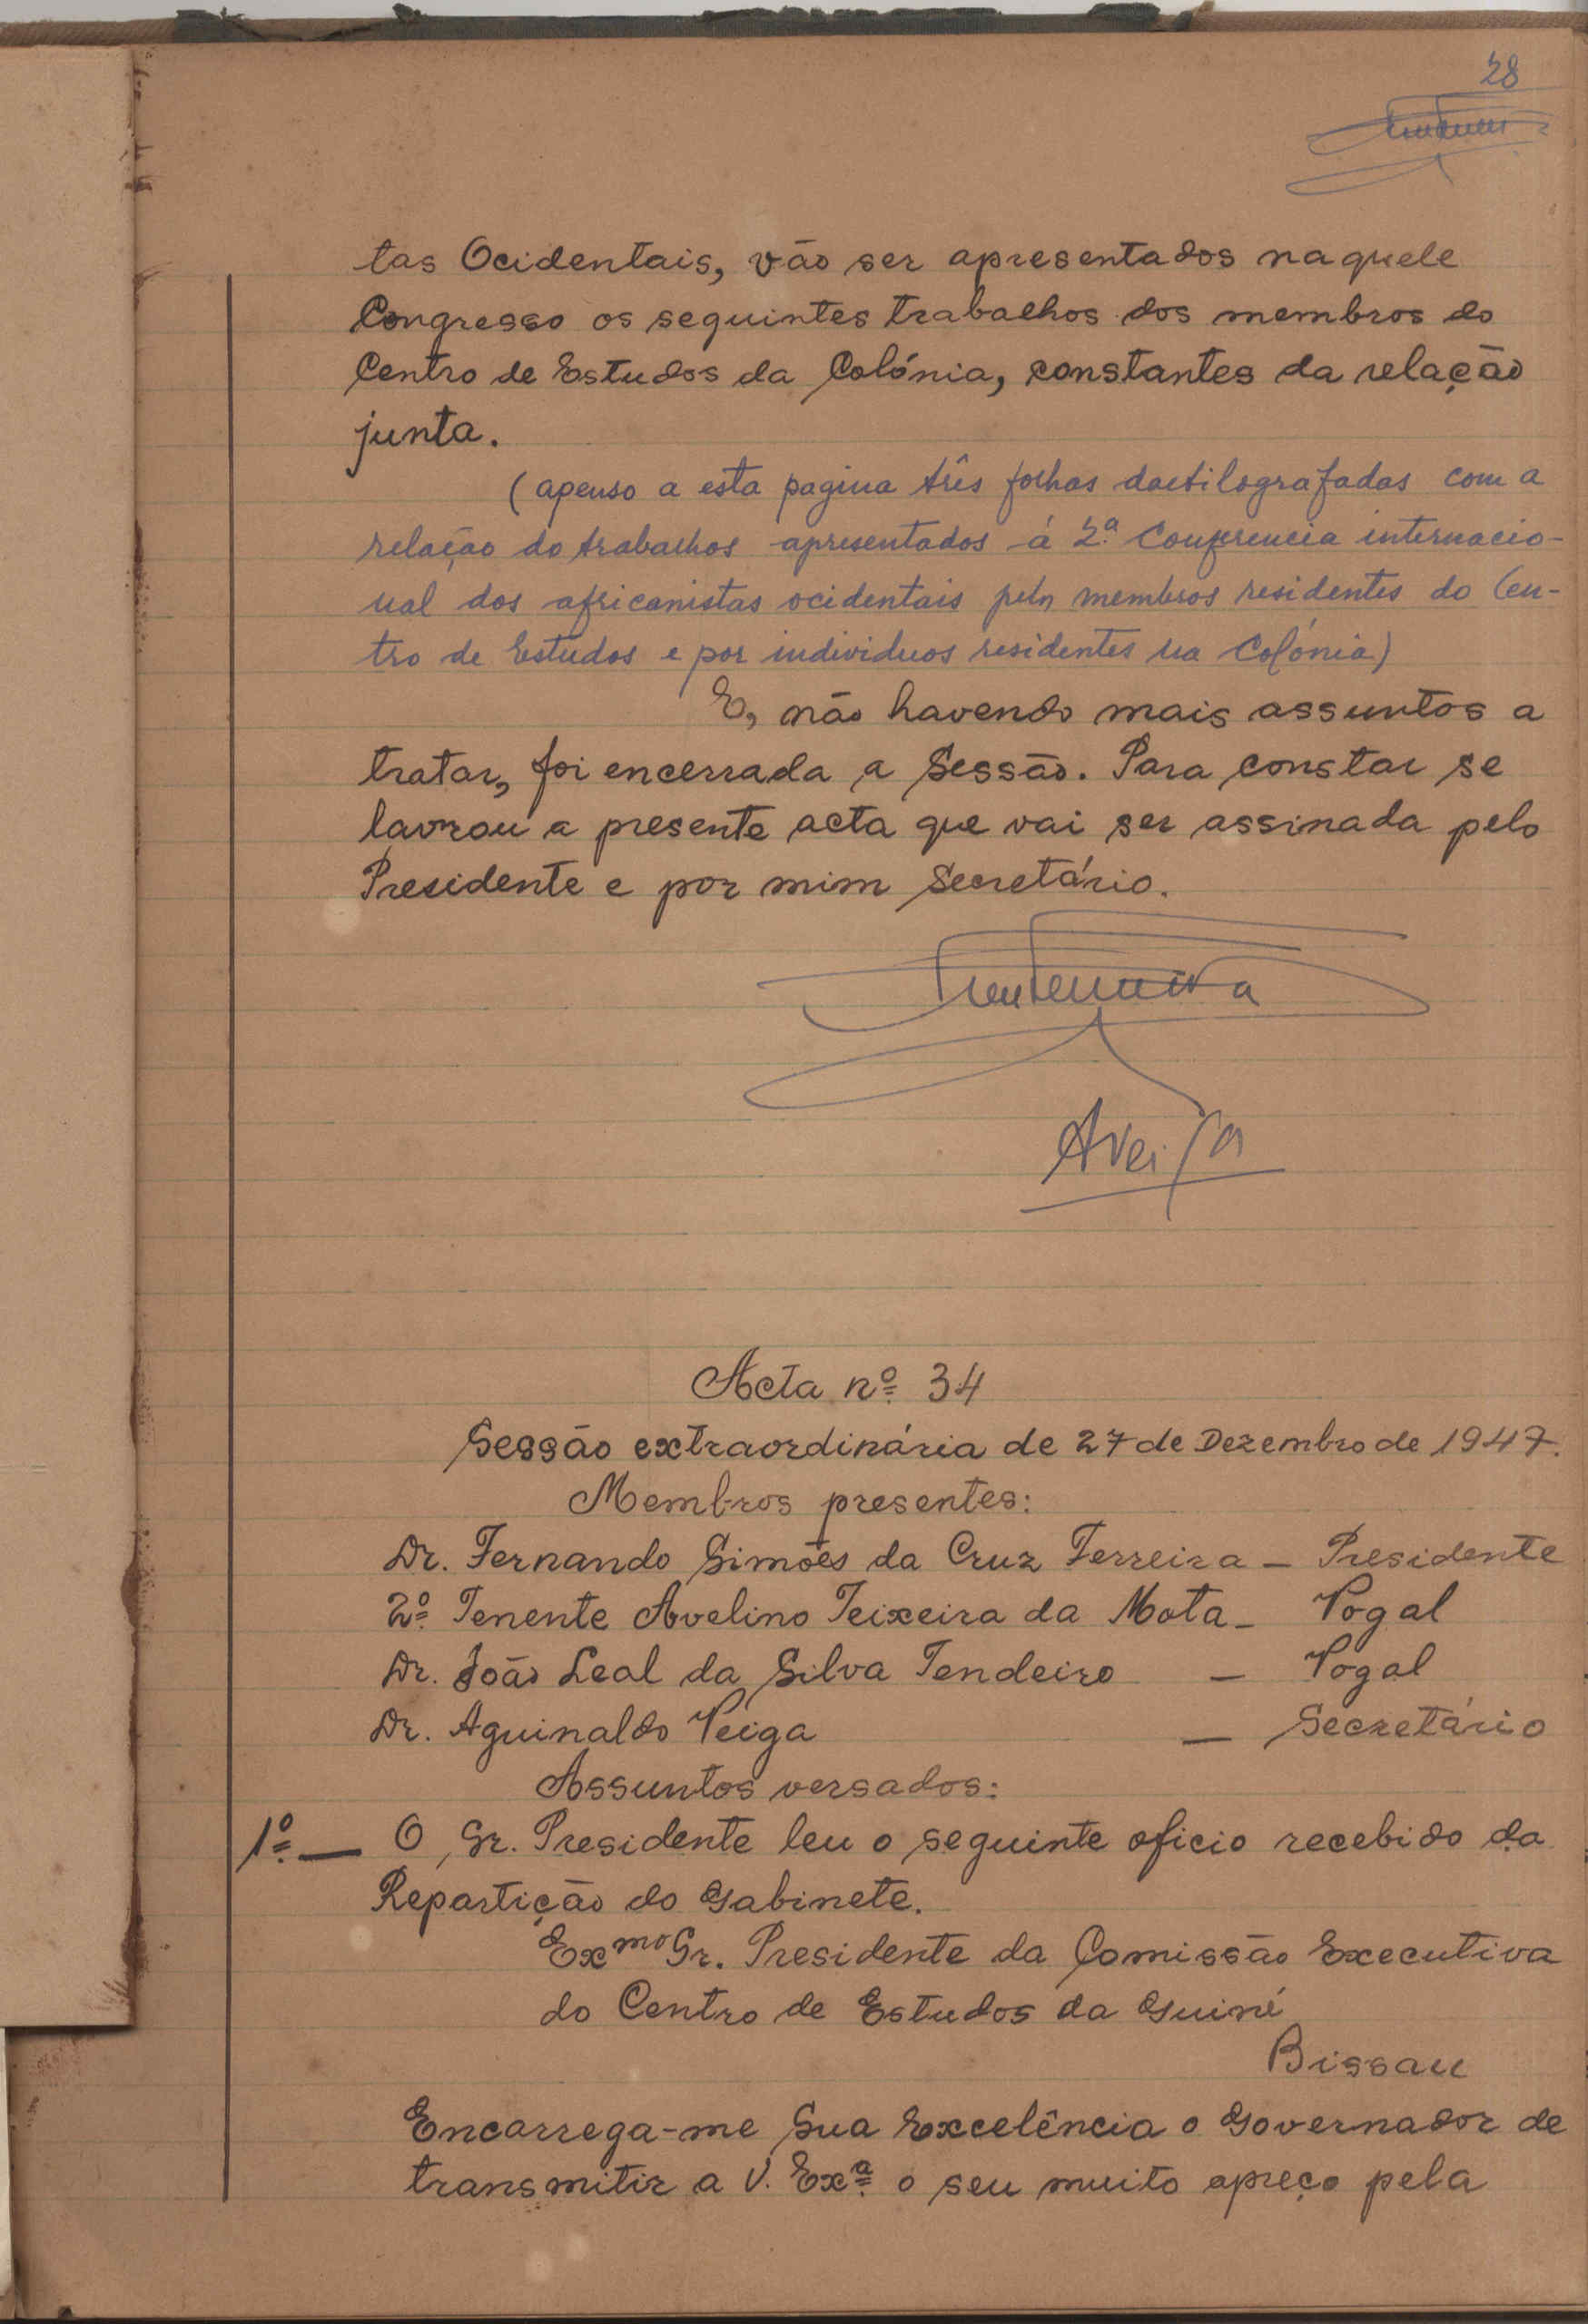 28
tas Ocidentais, vão ser apresentados naquele
Congresso os seguintes trabalhos dos membros do
Centro de Estudos da Colónia, constantes da relação
junta.
(apenso a esta pagina três folhas dactilografadas com a
relação do trabalhos apresentados á 2.ª Conferencia internacio-
nal dos africanistas ocidentais pelos membros residentes do Cen-
tro de Estudos e por individuos residentes na Colónia)
E, não havendo mais assuntos a
tratar, foi encerrada a Sessão. Para constar se
lavrou a presente acta que vai ser assinada pelo
Presidente e por mim Secretário.
AVeiga
Acta nº 34
Sessão extraordinária de 27 de Dezembro de 1947.
Membros presentes:
Dr. Fernando Simões da Cruz Ferreira – Presidente
2º Tenente Avelino Teixeira da Mota – Vogal
Dr. João Leal da Silva Tendeiro – Vogal
Dr. Aguinaldo Veiga – Secretário
Assuntos versados:
1º — O Sr. Presidente leu o seguinte oficio recebido da
Repartição do Gabinete.
Exmo Sr. Presidente da Comissão Executiva
do Centro de Estudos da Guiné
Bissau
Encarrega-me Sua Excelência o Governador de
transmitir a V. Exª o seu muito apreço pela